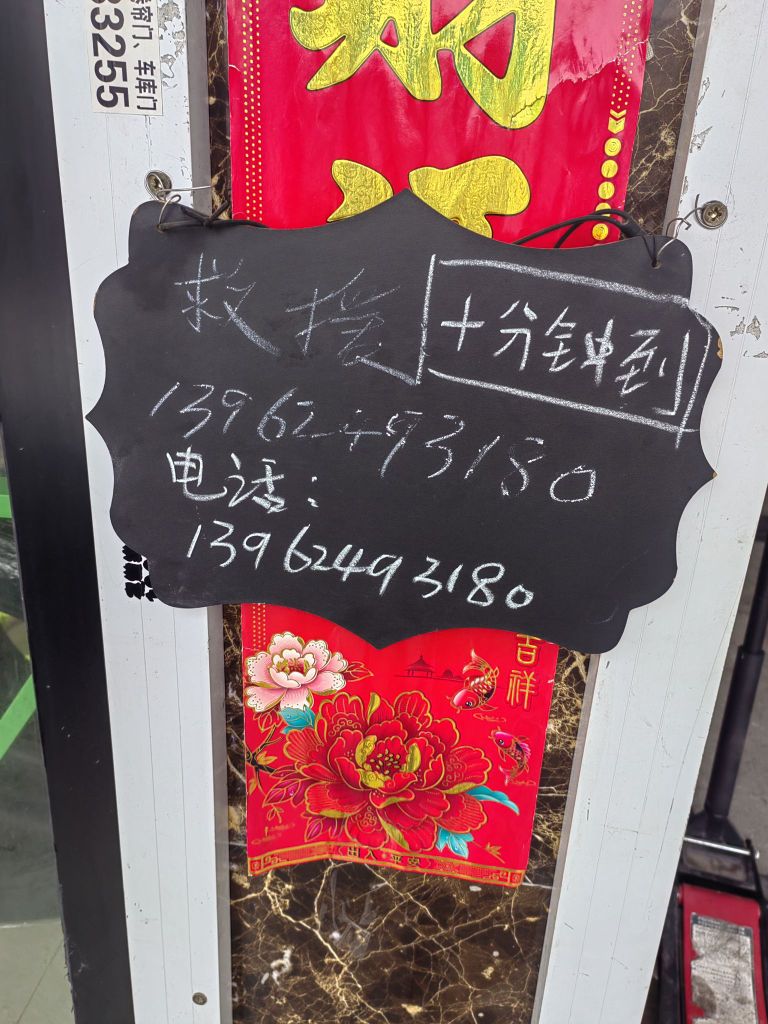 卷帘门、车库门
83255
救援 十分钟到
13962493180
电话：
13962493180
吉祥
出入平安